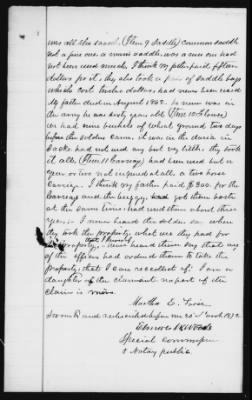 was all she saved. (Item 9 Saddle) common saddle
not a fine one a mans saddle, was a new one had
not been used much, I think my father paid fifteen
dollars for it, they also took a pair of saddle bags
which cost twelve dollars, had never been used
My father died in August 1862. he never was in
the army he was sixty years old (Item 10 Flour)
we had nine barrels of wheat ground two days
before the soldiers came, it was in the church in
Sacks had not used any but very little; they took
it all (Item 11 Carriage) had been used but a
year or two not injured at all a two horse
Carriage. I think my father paid $300. for the
Carriage and the buggy, had got them both
at the same time; had used them about three
years. I never heard the soldiers say when
they took the property what use they had for
the property, that I know of, I never heard them say that any
of the officers had ordered them to take the
property; that I can recollect of: I am a
daughter of the claimant no part of the
claim is mine.
Martha E.
Sworn to and subscribed before me 25" March 1872
Special Commissioner
& Notary public